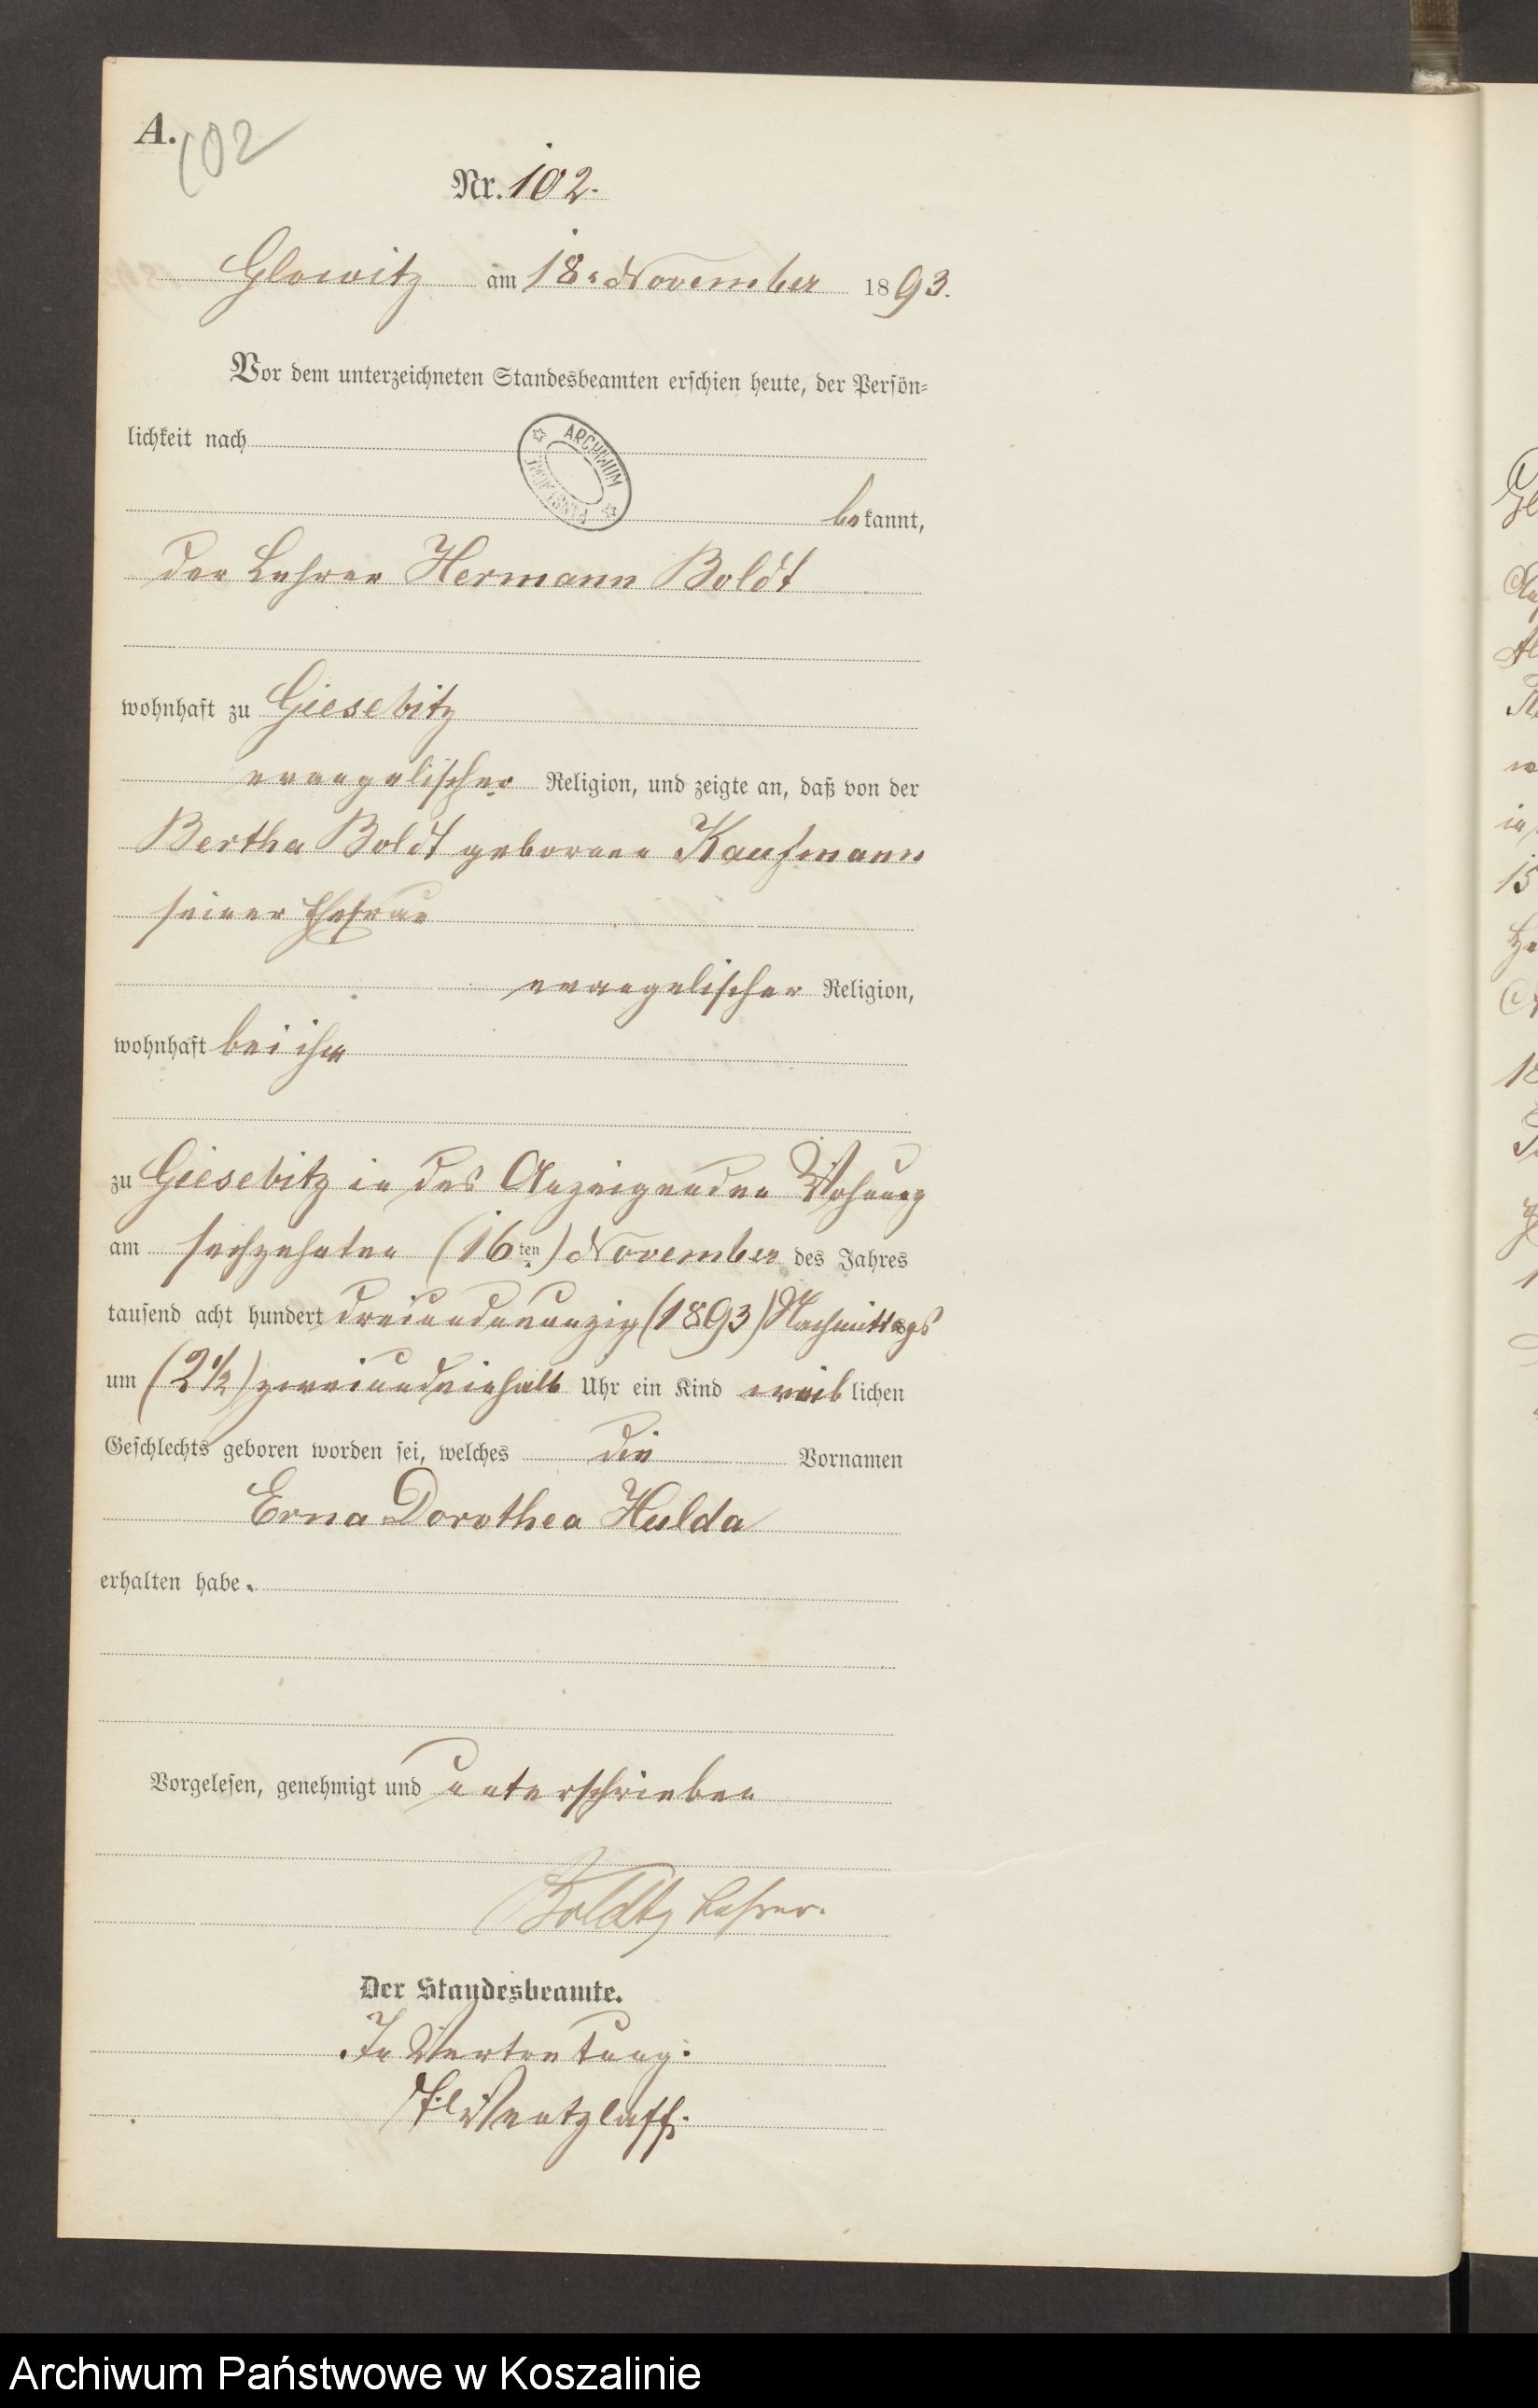 A.
102
Nr. 102.
Glowitz am 18. November 1893.
Vor dem unterzeichneten Standesbeamten erschien heute, der Persön-
lichkeit nach
ARCHIWUM
PAŃSTWOWE
bekannt,
der Lehrer Hermann Boldt
wohnhaft zu Giesebitz
evangelischer Religion, und zeigte an, daß von der
Bertha Boldt geborenen Kaufmann
seiner Ehefrau
evangelischer Religion,
wohnhaft bei ihm
zu Giesebitz in des Anzeigenden Wohnung
am sechzehnten (16ten) November des Jahres
tausend acht hundert dreiundneunzig (1893) Nachmittags
um (2½) zweiundeinhalb Uhr ein Kind weiblichen
Geschlechts geboren worden sei, welches die Vornamen
Erna Dorothea Hulda
erhalten habe.
Vorgelesen, genehmigt und unterschrieben
Boldt, Lehrer.
Der Standesbeamte.
In Vertretung:
Wentzlaff.
Archiwum Państwowe w Koszalinie